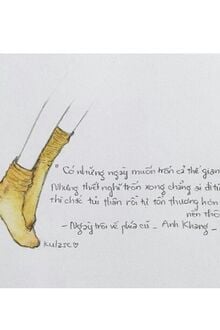 "Có những ngày muốn trốn cả thế gian
Nhưng thiết nghĩ trốn xong chẳng ai đi tì
thì chắc tủi thân rồi tự tổn thương hơn
nên thô
- Ngày trôi về phía cũ - Anh Khang -
kulzsc